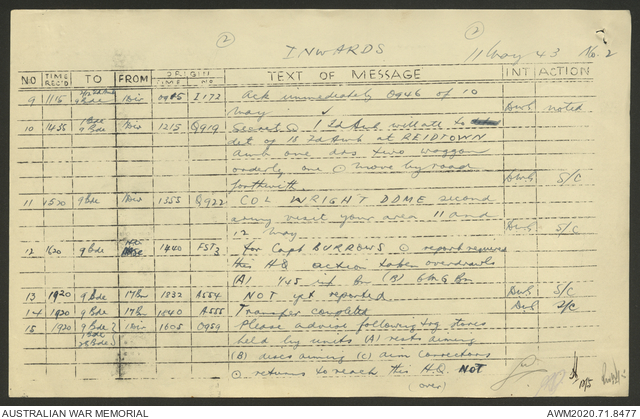 (2) (2)
INWARDS 11 May 43 No. 2
NO TIME REC'D TO FROM ORIGIN TIME NO TEXT OF MESSAGE INT ACTION
9 1115 9 Bde 1 Div 0945 I172 Ack immediately O946 of 10
May noted
10 1455 9 Bde 1 Div 1215 Q919 1 2d Amb will att to
det of 2d Amb at REIDTOWN
amb one drs two waggon
orderly one ⊙ move by road
forthwith S/C
11 1530 9 Bde 1 Div 1355 Q922 COL WRIGHT DDME second
army visit your area 11 and
12 May S/C
12 1620 9 Bde 1440 FST3 for Capt BURROWS ⊙ report required
this HQ action taken overdrawls
(A) 1/45 inf Bn (B) 6 MG Bn
13 1920 9 Bde 17 Bn 1832 A554 NOT yet reported S/C
14 1920 9 Bde 17 Bn 1840 A555 Transfer completed S/C
15 1920 9 Bde 1 Div 1605 O959 Please advise following trg stores
held by units (A) rests aiming
(B) discs aiming (C) aim correctors
⊙ returns to reach this H.Q. NOT
(over)
AUSTRALIAN WAR MEMORIAL AWM2020.71.8477